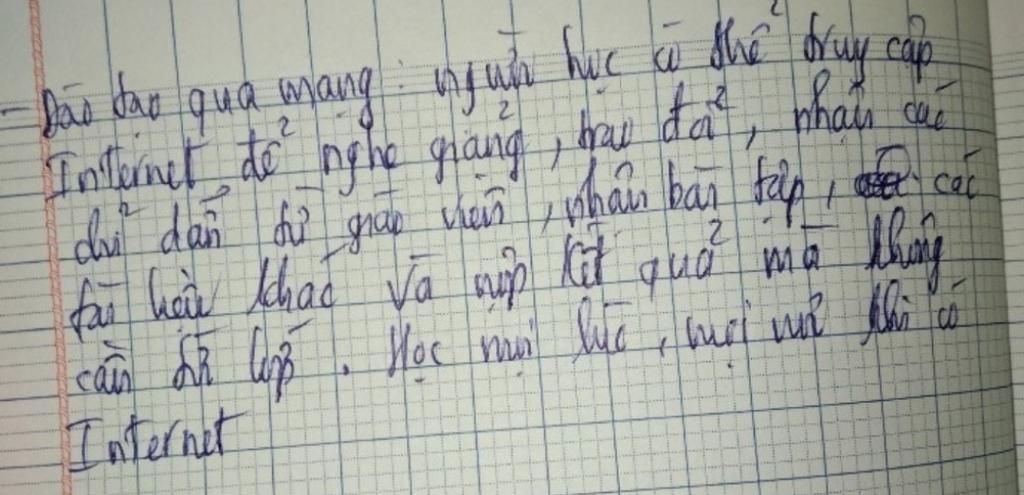 - Đào tạo qua mạng: người học có thể truy cập
Internet để nghe giảng, trao đổi, nhận các
chỉ dẫn từ giáo viên, nhận bài tập, các
tài liệu khác và nộp kết quả mà không
cần tới lớp. Học mọi lúc, mọi nơi khi có
Internet